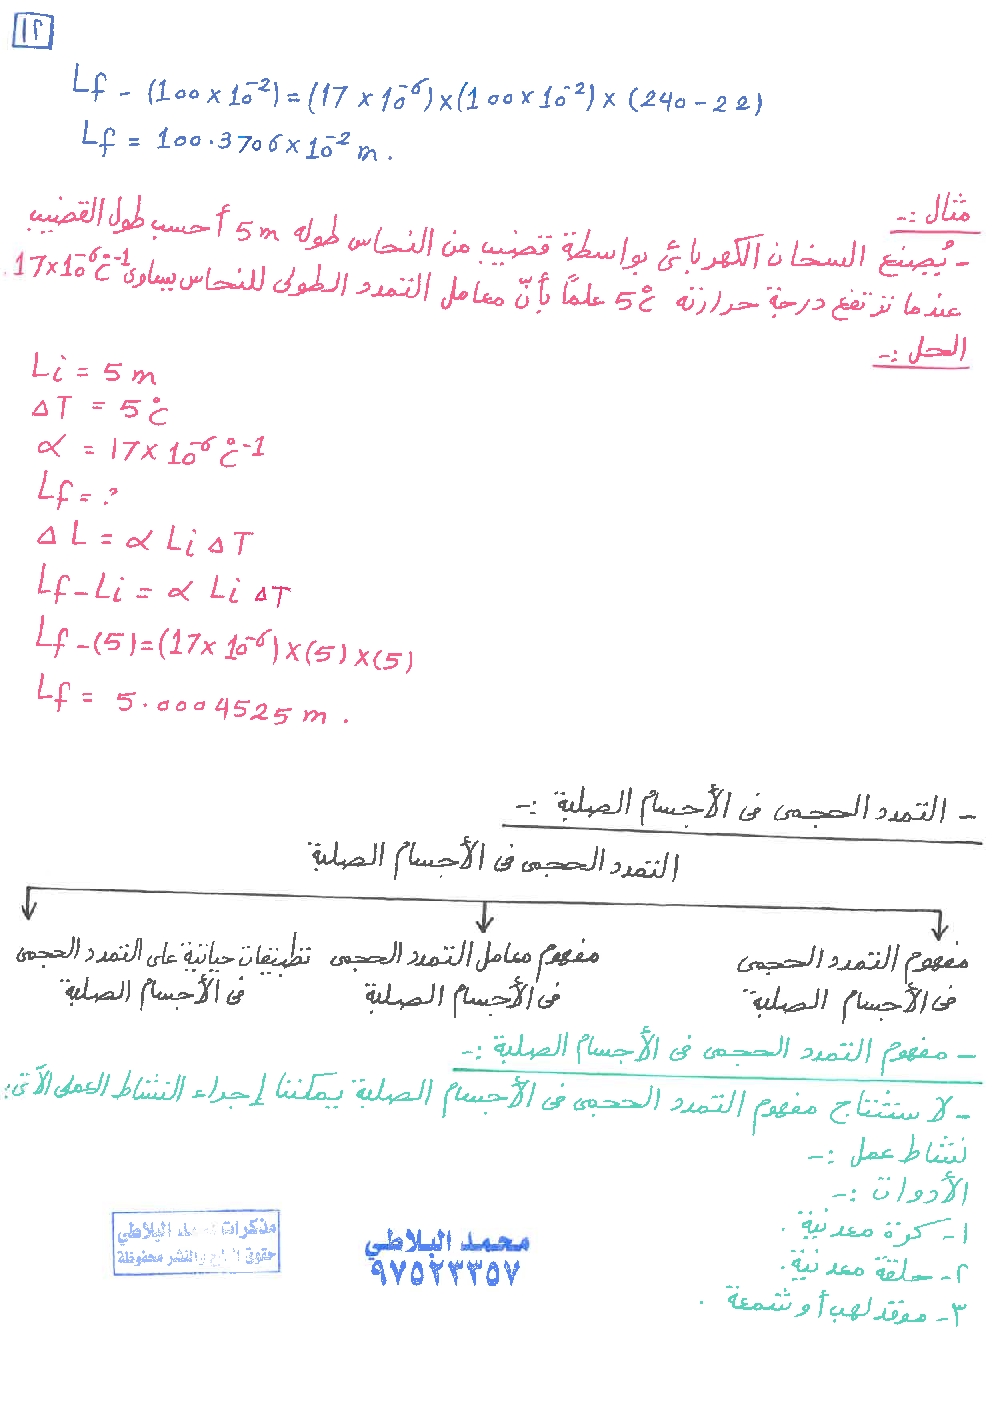 ١٢
Lf - (100×10⁻²) = (17×10⁻⁶)×(100×10⁻²)×(240-22)
Lf = 100.3706×10⁻² m.
مثال :-
- يُصنع السخان الكهربائى بواسطة قضيب من النحاس طوله 5m أحسب طول القضيب
عندما ترتفع درجة حرارته 5°C علمًا بأنّ معامل التمدد الطولى للنحاس يساوى 17×10⁻⁶ °C⁻¹.
الحل :-
Li = 5 m
ΔT = 5°C
α = 17×10⁻⁶ °C⁻¹
Lf = ?
ΔL = α Li ΔT
Lf - Li = α Li ΔT
Lf - (5) = (17×10⁻⁶)×(5)×(5)
Lf = 5.0004525 m.
- التمدد الحجمى فى الأجسام الصلبة :-
التمدد الحجمى فى الأجسام الصلبة
مفهوم التمدد الحجمى
فى الأجسام الصلبة
مفهوم معامل التمدد الحجمى
فى الأجسام الصلبة
تطبيقات حياتية على التمدد الحجمى
فى الأجسام الصلبة
- مفهوم التمدد الحجمى فى الأجسام الصلبة :-
- لاستنتاج مفهوم التمدد الحجمى فى الأجسام الصلبة يمكننا إجراء النشاط العملى الآتى :
نشاط عمل :-
الأدوات :-
١- كرة معدنية .
٢- حلقة معدنية.
٣- موقد لهب أو شمعة .
مذكرات محمد البلاطي
حقوق الطبع والنشر محفوظة
محمد البلاطي
٩٧٥٢٣٣٥٧